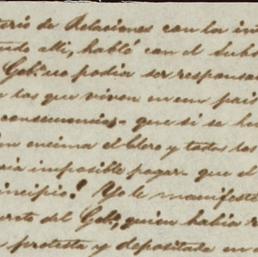 terio de Relaciones con la in
ndo allí, habló con el Subs
Gobº. no podia ser responsa
los que viven en un pais
consecuencias - que si se ha
encima el clero y todos los
ria imposible pagar - que el
ncipio! Yo le manifesté
del Gobº, quien habia r
protesta y depositada en